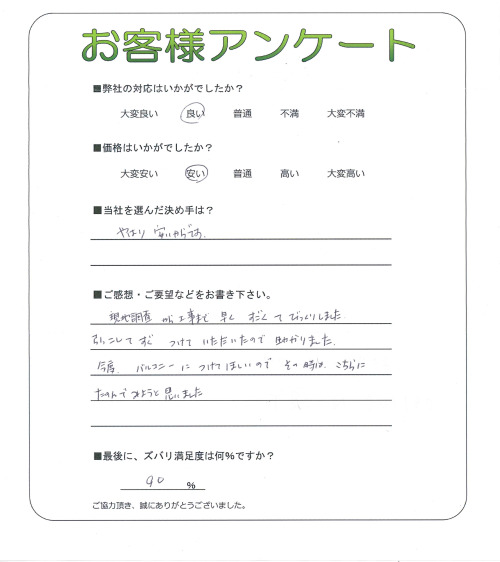 お客様アンケート
■弊社の対応はいかがでしたか?
大変良い 良い 普通 不満 大変不満
■価格はいかがでしたか?
大変安い 安い 普通 高い 大変高い
■当社を選んだ決め手は?
やはり 安いからです。
■ご感想・ご要望などをお書き下さい。
現地調査 から工事まで 早く すごく てびっくりしました。
ひっこしして すぐ つけて いただいたので 助かりました。
今度 バルコニーに つけてほしいので その時は こちらに
たのんでみようと 思いました
■最後に、ズバリ満足度は何%ですか?
90 %
ご協力頂き、誠にありがとうございました。